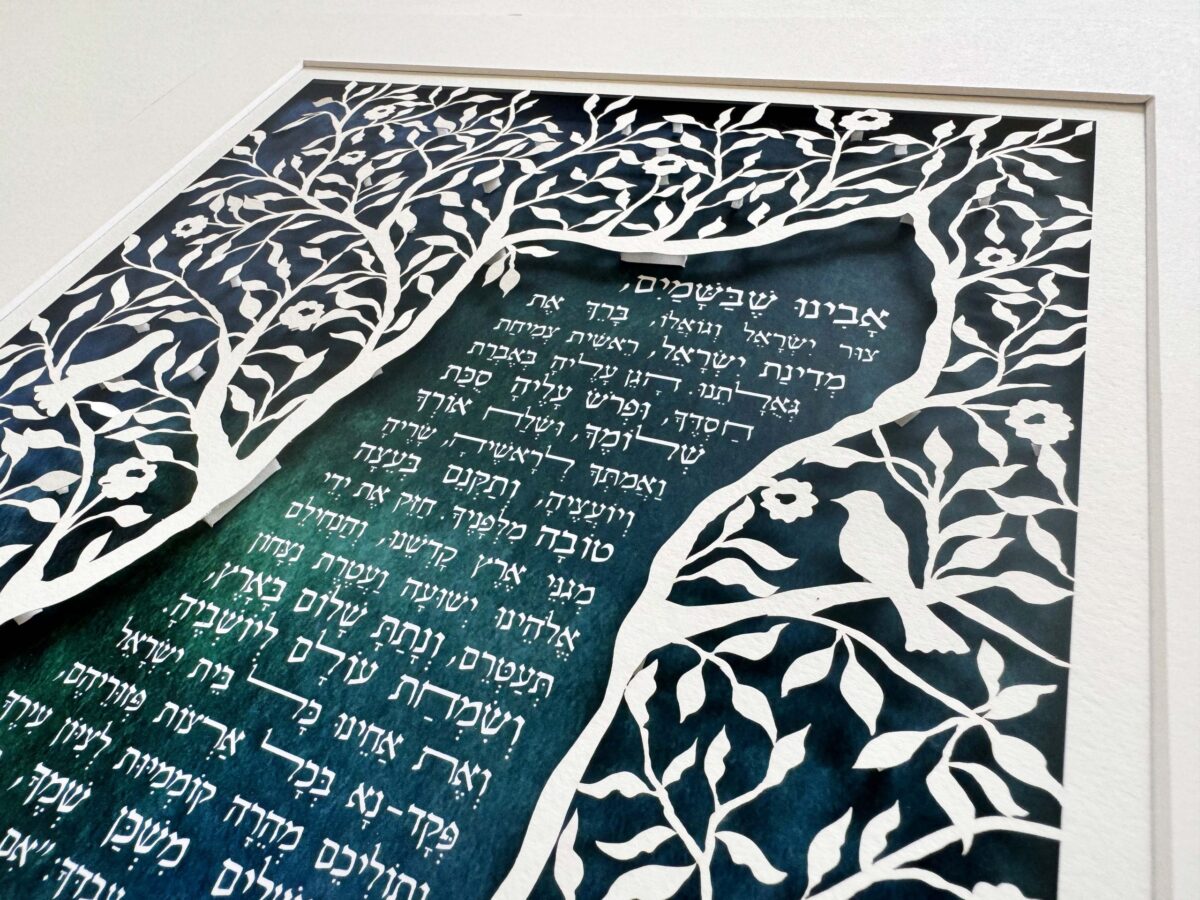 אָבִינוּ שֶׁבַּשָּׁמַיִם,
צוּר יִשְׂרָאֵל וְגוֹאֲלוֹ, בָּרֵךְ אֶת
מְדִינַת יִשְׂרָאֵל, רֵאשִׁית צְמִיחַת
גְּאֻלָּתֵנוּ. הָגֵן עָלֶיהָ בְּאֶבְרַת
חַסְדֶּךָ, וּפְרֹשׂ עָלֶיהָ סֻכַּת
שְׁלוֹמֶךָ, וּשְׁלַח אוֹרְךָ
וַאֲמִתְּךָ לְרָאשֶׁיהָ, שָׂרֶיהָ
וְיוֹעֲצֶיהָ, וְתַקְּנֵם בְּעֵצָה
טוֹבָה מִלְּפָנֶיךָ. חַזֵּק אֶת יְדֵי
מְגִנֵּי אֶרֶץ קָדְשֵׁנוּ, וְהַנְחִילֵם
אֱלֹהֵינוּ יְשׁוּעָה וַעֲטֶרֶת נִצָּחוֹן
תְּעַטְּרֵם, וְנָתַתָּ שָׁלוֹם בָּאָרֶץ,
וְשִׂמְחַת עוֹלָם לְיוֹשְׁבֶיהָ.
וְאֶת אַחֵינוּ כָּל בֵּית יִשְׂרָאֵל
פְּקָד-נָא בְּכָל אַרְצוֹת פְּזוּרֵיהֶם,
וְתוֹלִיכֵם מְהֵרָה קוֹמְמִיּוּת לְצִיּוֹן עִירֶךָ
מִשְׁכַּן שְׁמֶךָ,
עַבְדֶּךָ: "אִם